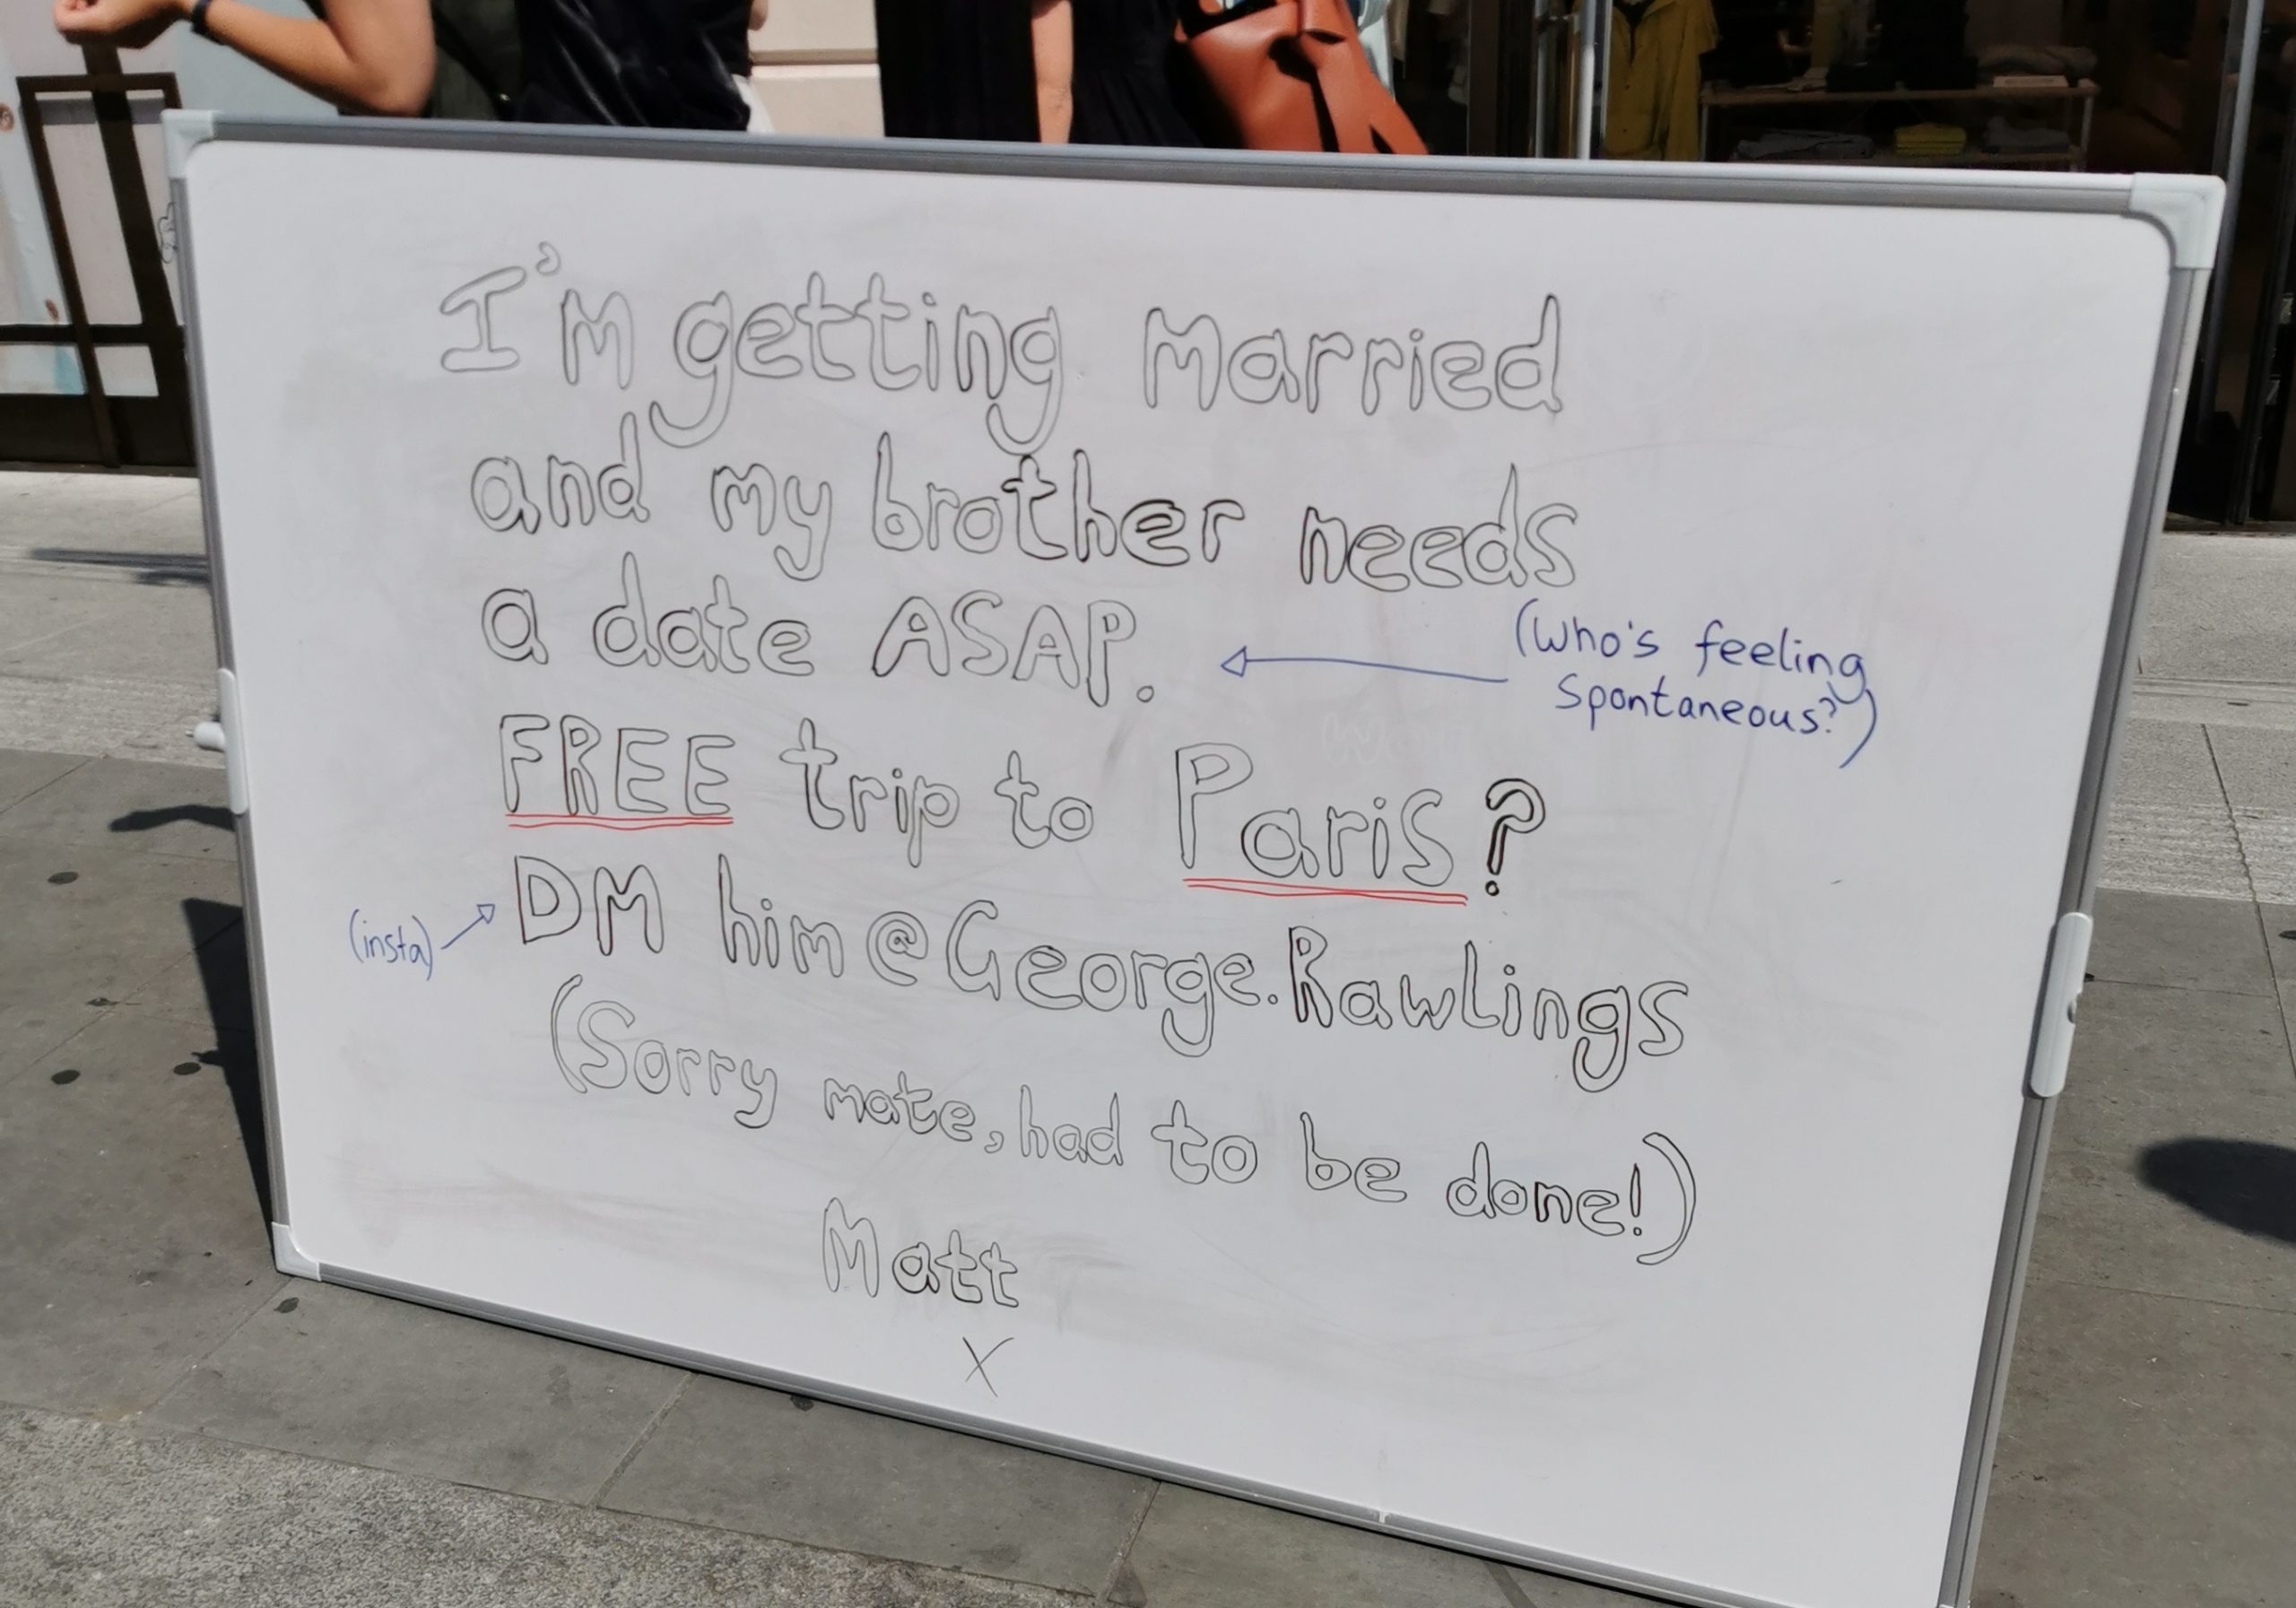 I'm getting married
and my brother needs
a date ASAP.
(Who's feeling
Spontaneous?)
FREE trip to Paris?
(insta)
DM him @George.Rawlings
(Sorry mate, had to be done!)
Matt
X